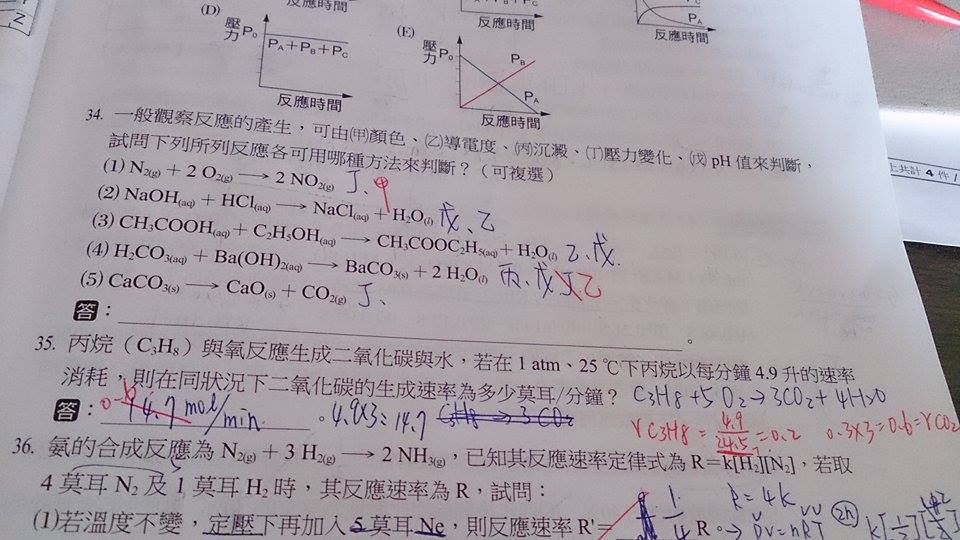 反應時間
反應時間
(D)
壓力 P₀
P_A + P_B + P_C
反應時間
(E)
壓力 P₀
P_B
P_A
反應時間
P_A
反應時間
34. 一般觀察反應的產生，可由㈙顏色、㈚導電度、㈛沉澱、㈜壓力變化、㈝ pH 值來判斷，
試問下列所列反應各可用哪種方法來判斷？（可複選）
(1) N₂(g) + 2 O₂(g) ⟶ 2 NO₂(g) 丁、甲
(2) NaOH(aq) + HCl(aq) ⟶ NaCl(aq) + H₂O(l) 戊、乙
(3) CH₃COOH(aq) + C₂H₅OH(aq) ⟶ CH₃COOC₂H₅(aq) + H₂O(l) 乙、戊.
(4) H₂CO₃(aq) + Ba(OH)₂(aq) ⟶ BaCO₃(s) + 2 H₂O(l) 丙、戊、乙
(5) CaCO₃(s) ⟶ CaO(s) + CO₂(g) 丁、
答：。
35. 丙烷（C₃H₈）與氧反應生成二氧化碳與水，若在 1 atm、25 ℃下丙烷以每分鐘 4.9 升的速率
消耗，則在同狀況下二氧化碳的生成速率為多少莫耳/分鐘？ C₃H₈+5O₂→3CO₂+4H₂O
答：0.6 14.7 mol/min 。 4.9×3=14.7 C₃H₈→3CO₂
γC₃H₈ = 4.9/24.5 = 0.2 0.3×3=0.6=γCO₂
36. 氨的合成反應為 N₂(g) + 3 H₂(g) ⟶ 2 NH₃(g)，已知其反應速率定律式為 R=k[H₂][N₂]，若取
4 莫耳 N₂ 及 1 莫耳 H₂ 時，其反應速率為 R，試問：
R=4k
(1)若溫度不變，定壓下再加入 5 莫耳 Ne，則反應速率 R'= 1/4 R。→ PV=nRT
上共計 4 件